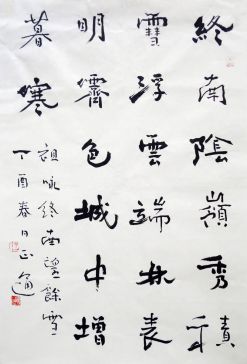 終南陰嶺秀積
雪浮雲端林表
明霽色城中增
暮寒
祖咏終南望餘雪
丁酉春日正